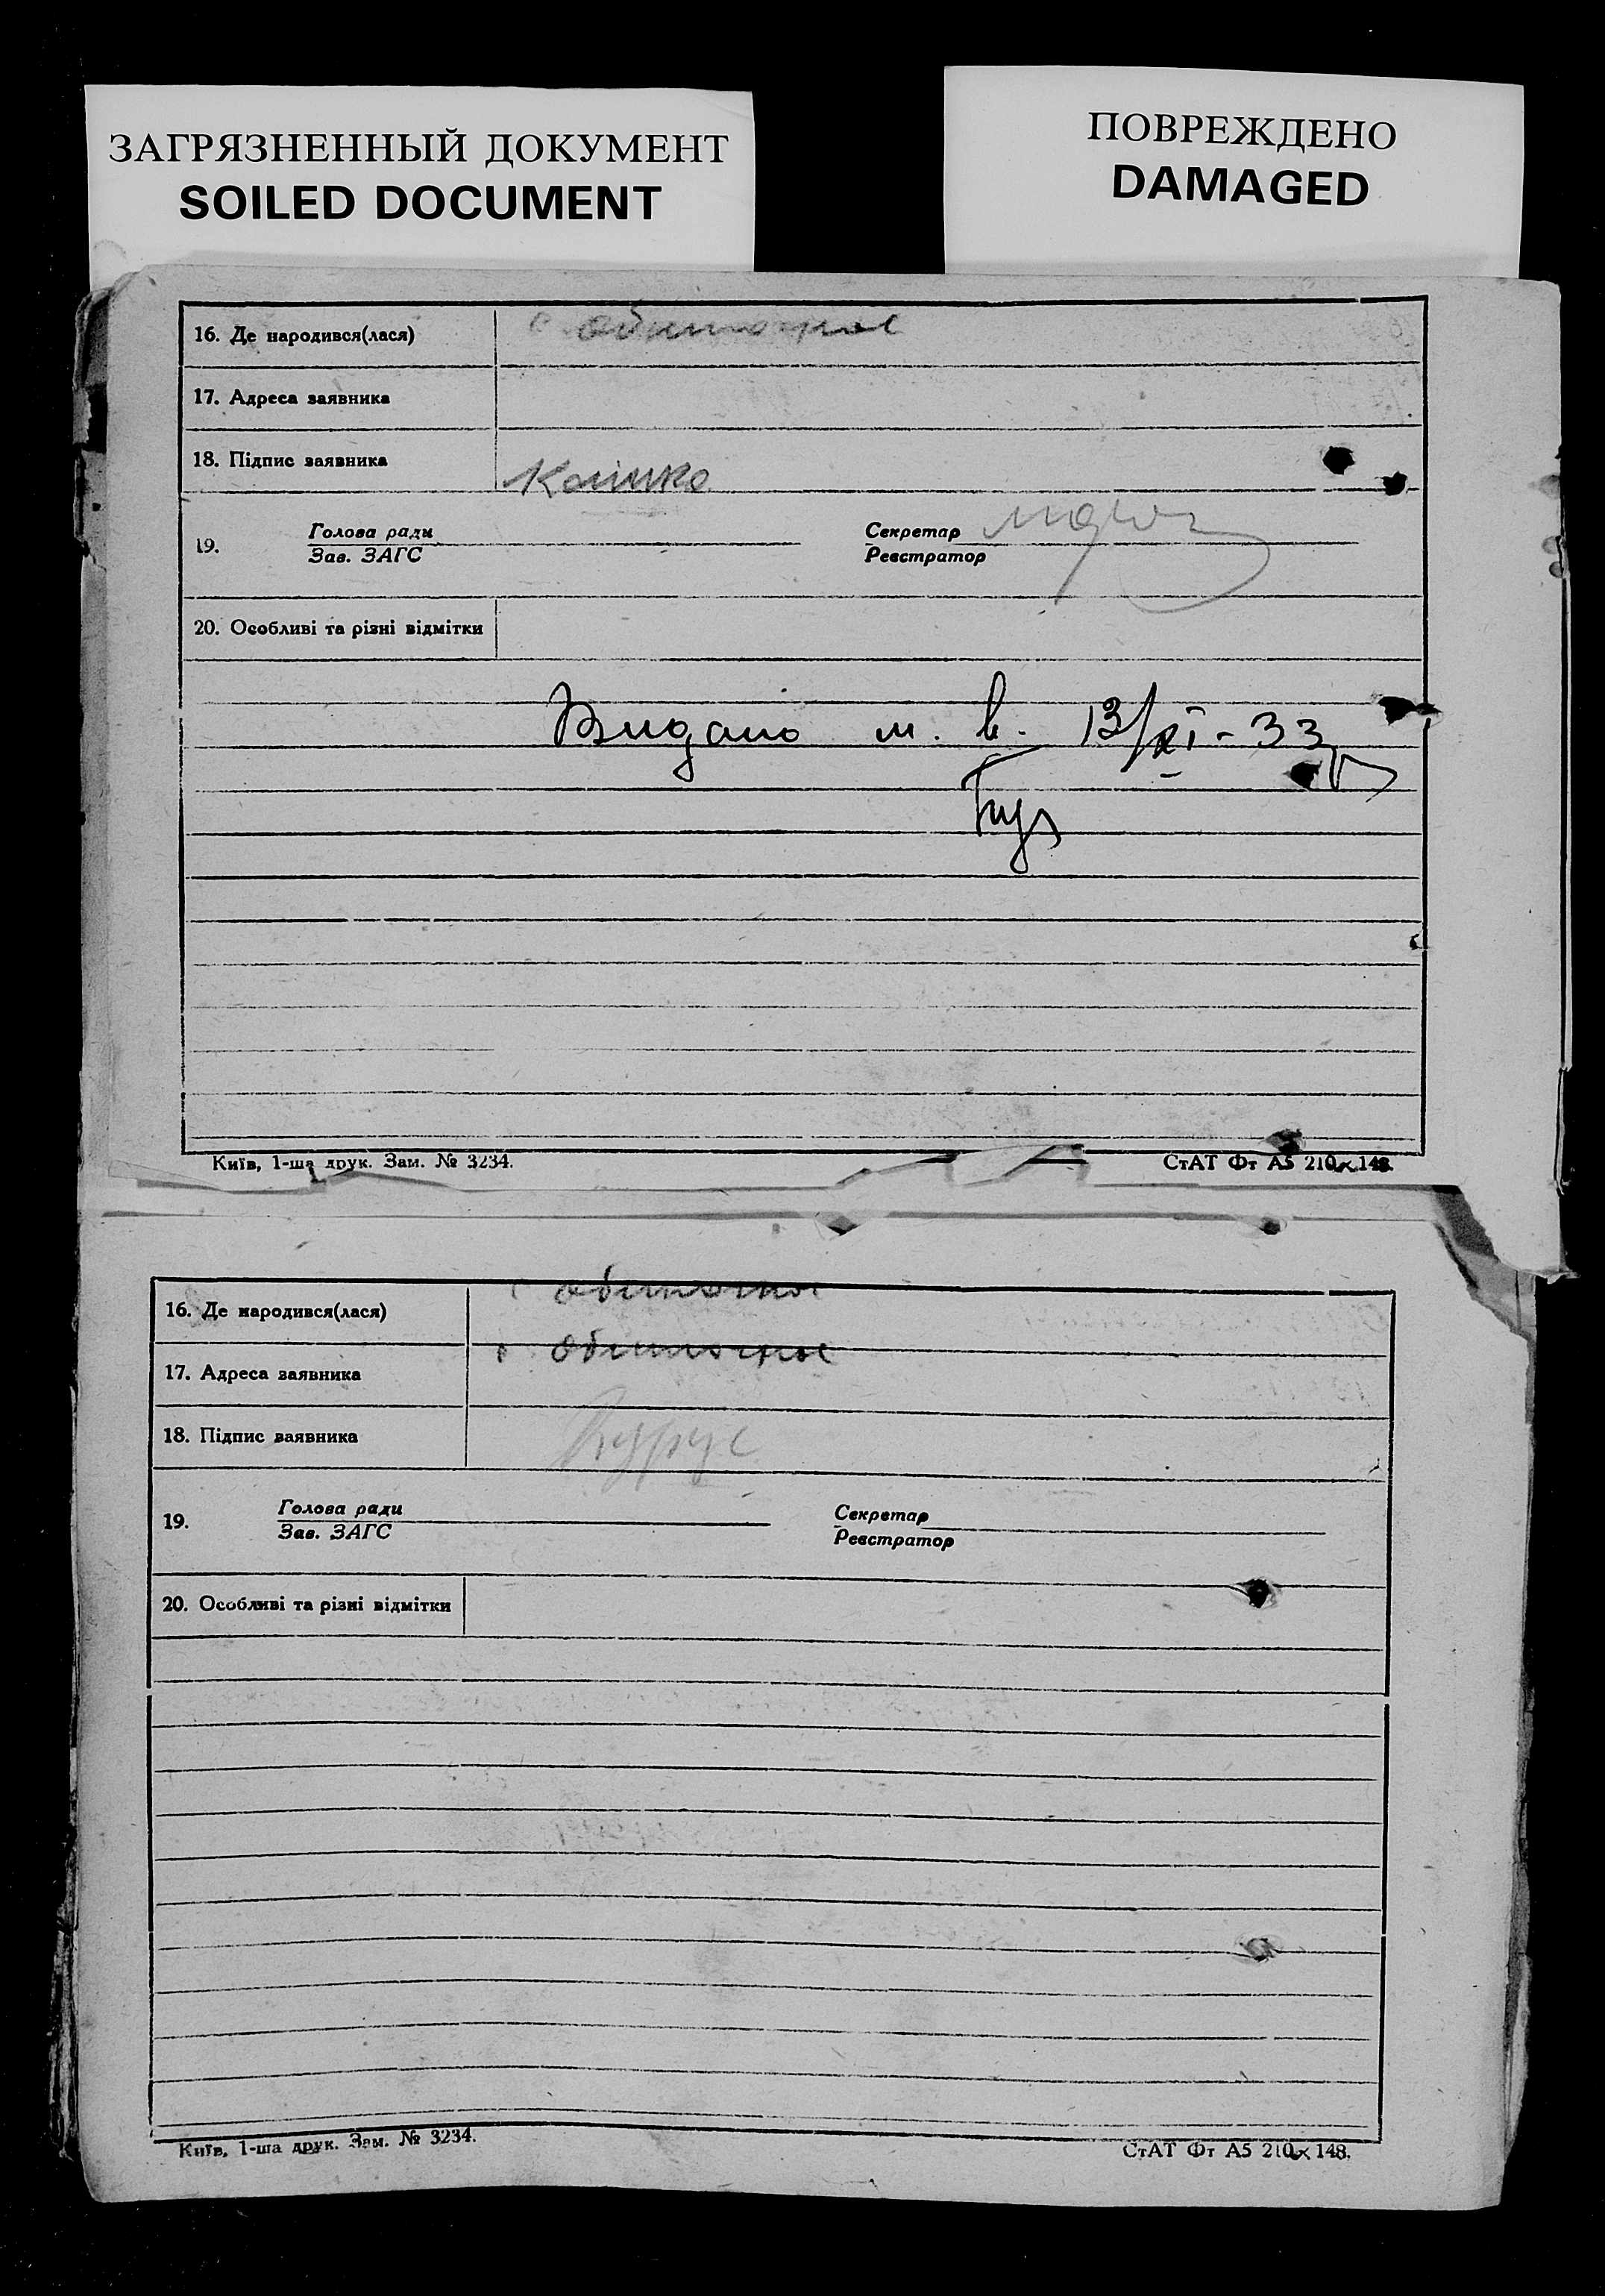 ЗАГРЯЗНЕННЫЙ ДОКУМЕНТ
SOILED DOCUMENT
ПОВРЕЖДЕНО
DAMAGED
16. Де народився(лася) с Обиточное
17. Адреса заявника
18. Підпис заявника Кошко
19. Голова ради Секретар
Зав. ЗАГС Реєстратор
20. Особливі та різні відмітки
Видано м. в. 13/XI-33
Київ, 1-ша друк. Зам. № 3234. СтАТ Фт А5 210×148.
16. Де народився(лася) с Обиточное
17. Адреса заявника с Обиточное
18. Підпис заявника
19. Голова ради Секретар
Зав. ЗАГС Реєстратор
20. Особливі та різні відмітки
Київ, 1-ша друк. Зам. № 3234. СтАТ Фт А5 210×148.